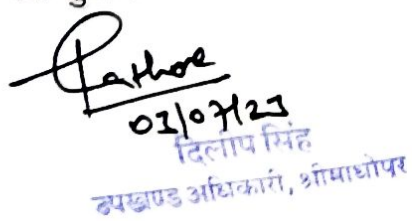 Rathore
03/07/23
दिलीप सिंह
उपखण्ड अधिकारी, श्रीमाधोपुर